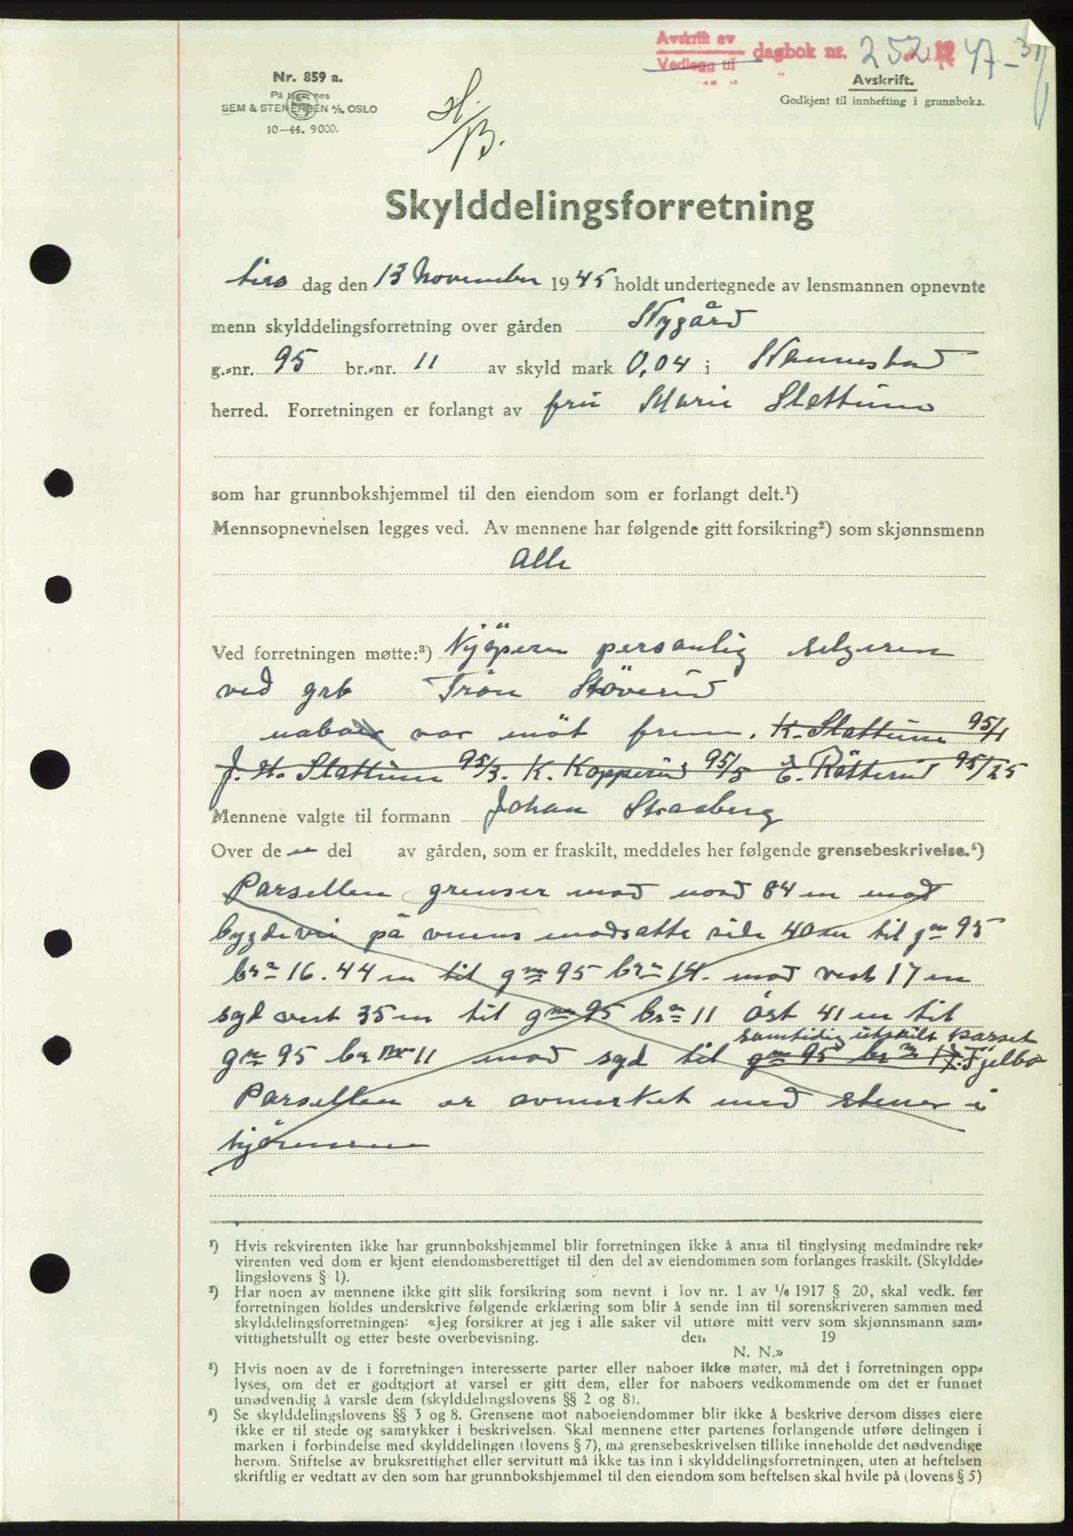 Avskrift av
Vedlegg til dagbok nr. 252 1947-31/1
Nr. 859 a.
På lager hos
SEM & STENERSEN A/S, OSLO
10-44. 9000.
Avskrift.
Godkjent til innhefting i grunnboka.
H./B.
Skylddelingsforretning
tirs dag den 13 November 1945 holdt undertegnede av lensmannen opnevnte
menn skylddelingsforretning over gården Nygård
g.-nr. 95 br.-nr. 11 av skyld mark 0,04 i Nannestad
herred. Forretningen er forlangt av fru Marie Slattum
som har grunnbokshjemmel til den eiendom som er forlangt delt.¹)
Mennsopnevnelsen legges ved. Av mennene har følgende gitt forsikring²) som skjønnsmenn
Alle
Ved forretningen møtte:³) Kjöpern personlig selgeren
ved grb Tron Stöverud
naboer var möt frem. K. Slattum 95/1
J. H. Slattum 95/3. K. Kopperud 95/5 E. Rötterud 95/25
Mennene valgte til formann Johan Straaberg
Over de n del av gården, som er fraskilt, meddeles her følgende grensebeskrivelse.⁴)
Parsellen grenser mod nord 84 m mod
bygdevei på veiens modsatte side 40 m til gnr 95
brnr 16. 44 m til gnr 95 brnr 14. mod vest 17 m
syd vest 35 m til gnr 95 brnr 11 öst 41 m til
samtidig utskilt parsel
gnr 95 br nr 11 mod syd til gnr 95 br nr 1 Fjelbo
Parsellen er avmerket med stener i
hjörnerne
¹) Hvis rekvirenten ikke har grunnbokshjemmel blir forretningen ikke å anta til tinglysing medmindre rek-
virenten ved dom er kjent eiendomsberettiget til den del av eiendommen som forlanges fraskilt. (Skyldde-
lingslovens § 1).
²) Har noen av mennene ikke gitt slik forsikring som nevnt i lov nr. 1 av 1/6 1917 § 20, skal vedk. før
forretningen holdes underskrive følgende erklæring som blir å sende inn til sorenskriveren sammen med
skylddelingsforretningen: «Jeg forsikrer at jeg i alle saker vil utføre mitt verv som skjønnsmann sam-
vittighetsfullt og etter beste overbevisning. den 19
N. N.»
³) Hvis noen av de i forretningen interesserte parter eller naboer ikke møter, må det i forretningen opp-
lyses, om det er godtgjort at varsel er gitt dem, eller for naboers vedkommende om det er funnet
unødvendig å varsle dem (skylddelingslovens §§ 2 og 8).
⁴) Se skylddelingslovens §§ 3 og 8. Grensene mot naboeiendommer blir ikke å beskrive dersom disses eiere
ikke er til stede og samtykker i beskrivelsen. Skal mennene etter partenes forlangende utføre delingen i
marken i forbindelse med skylddelingen (lovens § 7), må grensebeskrivelsen tillike inneholde det nødvendige
herom. Stiftelse av bruksrettighet eller servitutt må ikke tas inn i skylddelingsforretningen, uten at heftelsen
skriftlig er vedtatt av den som har grunnbokshjemmel til den eiendom som heftelsen skal hvile på (lovens § 5)